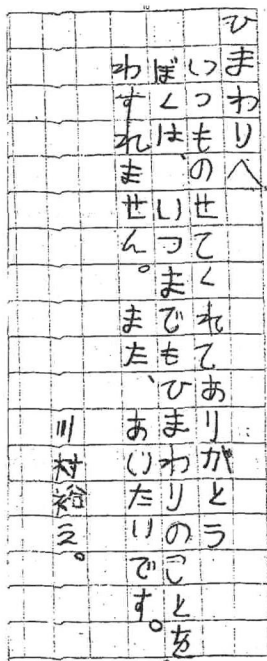 ひまわりへ
いつものせてくれてありがとう
ぼくは、いつまでもひまわりのことを
わすれません。また、あいたいです。
川村裕之。